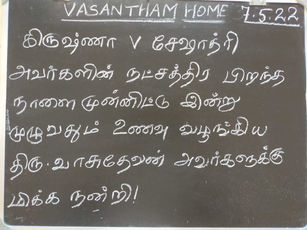 VASANTHAM HOME 7.5.22
கிருஷ்ணா V சேஷாத்ரி
அவர்களின் நட்சத்திர பிறந்த
நாளை முன்னிட்டு இன்று
முழுவதும் உணவு வழங்கிய
திரு. வாசுதேவன் அவர்களுக்கு
மிக்க நன்றி!